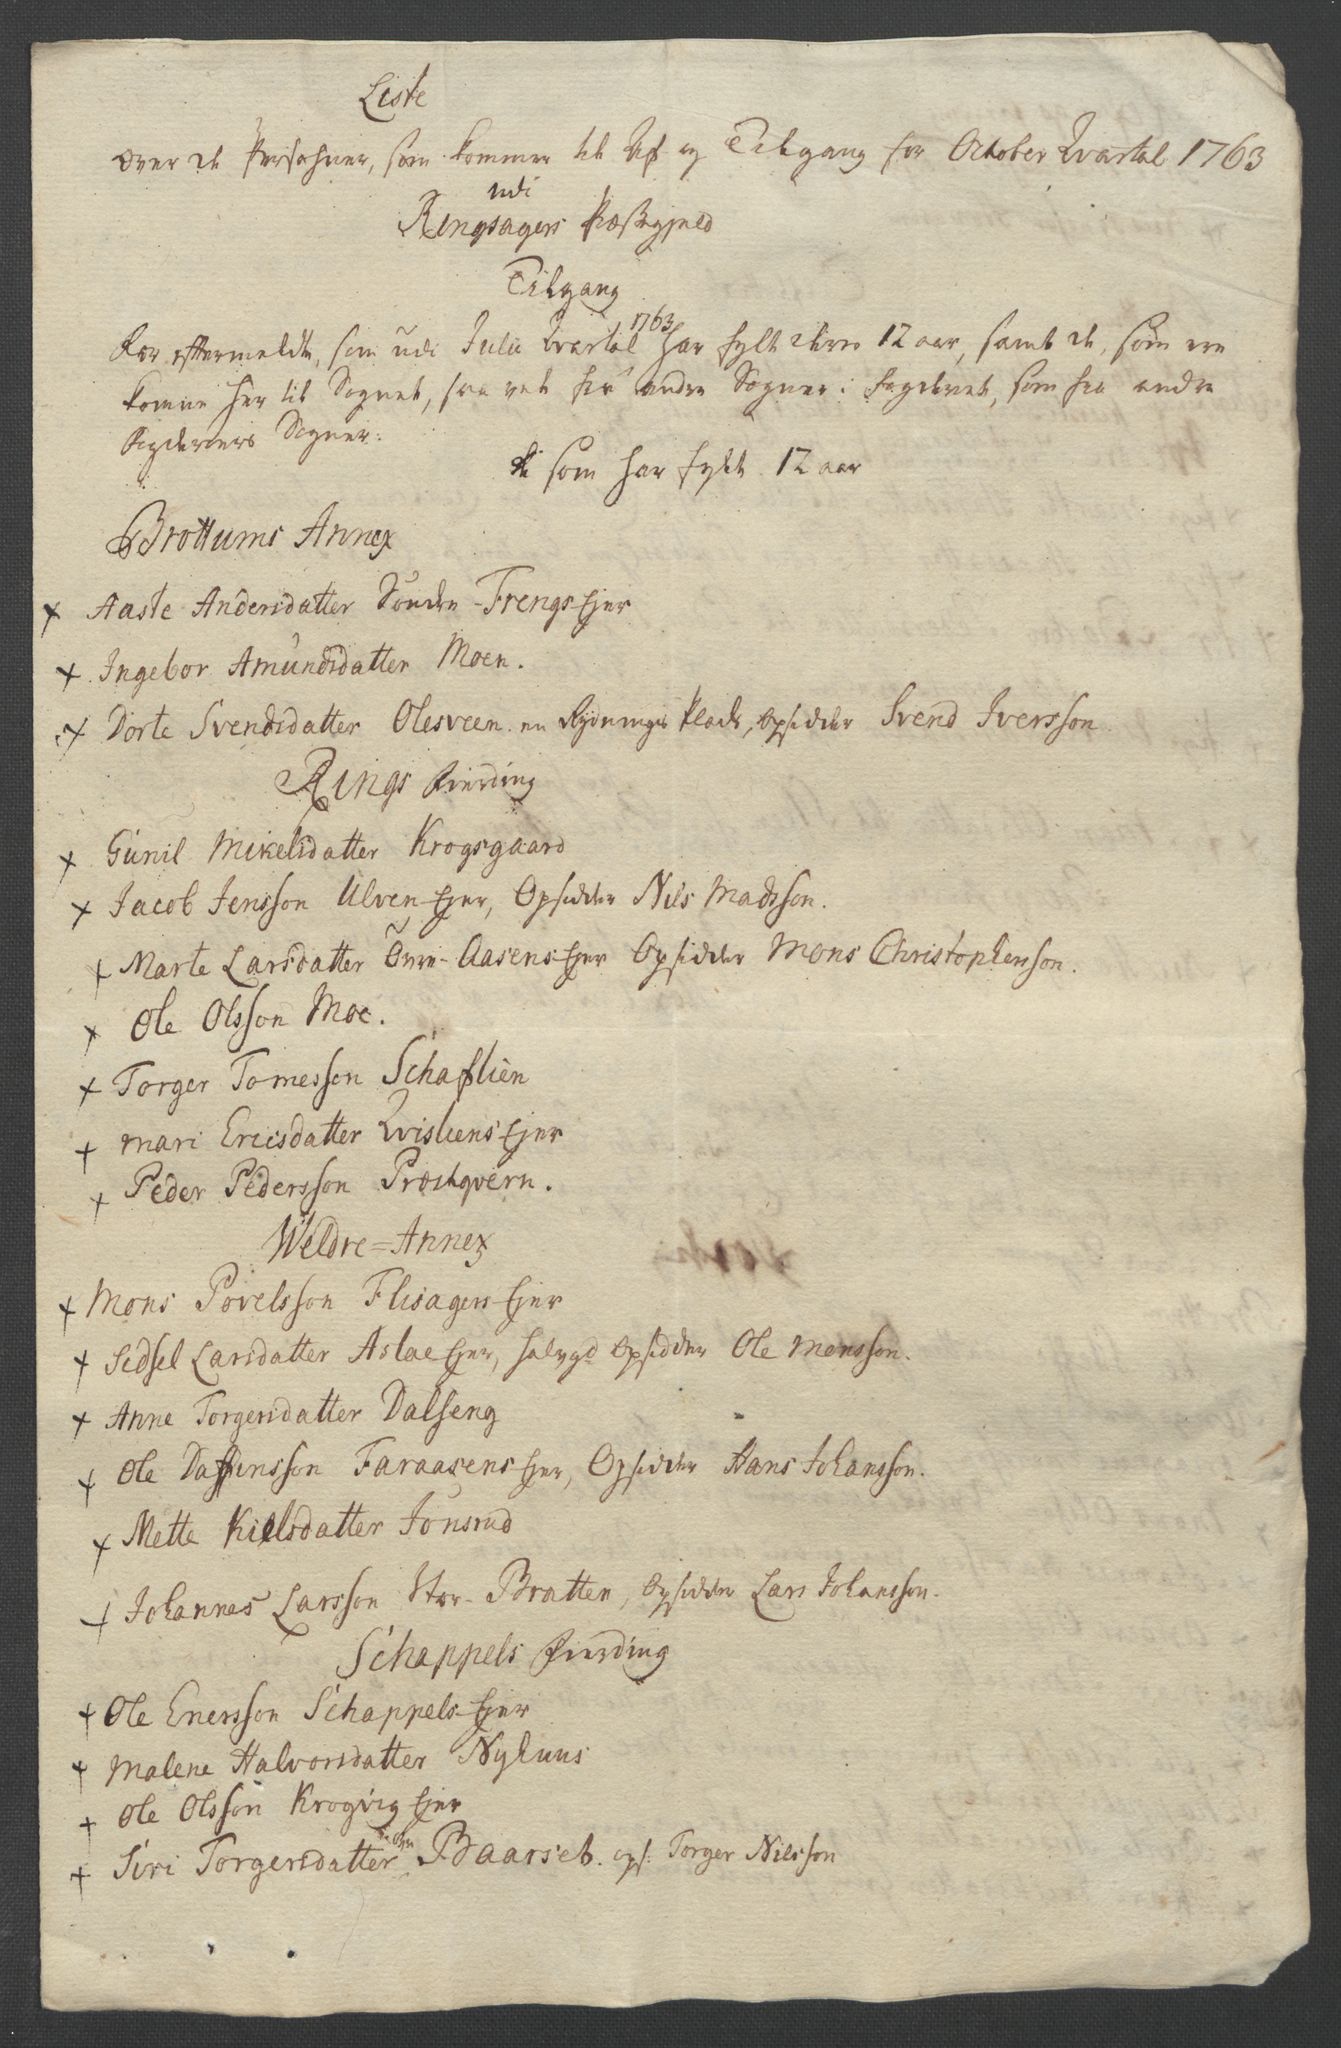 Liste
over de Persohner, som kommer til Af og Tilgang for October Qvartal 1763
udi
Ringsagers Præstegjeld
Tilgang
Er eftermeldte, som udi Julii Qvartal 1763 har fylt deres 12 aar, samt de, som ere
komne her til Sognet, saa vel fra andre Sogner i Fogderiet, som fra andre
Fogderiers Sogner:
de som har fylt 12 aar
Brottums Annex
+ Aaste Andersdatter Söndre-Frengs Ejer
+ Ingebor Amundsdatter Moen.
+ Dorte Svendsdatter Olesveen en Rydnings Plads, Opsidder Svend Iversson
Rings Fierding
+ Gunil Mikelsdatter Krogsgaard
+ Jacob Jensson Ulven Ejer, Opsidder Nils Madsson.
+ Marte Larsdatter Övre-Aasens Ejer Opsidder Mons Christophersson.
+ Ole Olsson Moe.
+ Torger Tomesson Schaflien
+ Mari Ericsdatter Qvisliens Ejer
+ Peder Pedersson Prestqvern.
Weldre=Annex
+ Mons Povelsson Flisagers Ejer
+ Sidsel Larsdatter Aslae Ejer, halvgd Opsidder Ole Monsson.
+ Anne Torgersdatter Dalseng
+ Ole Daffinsson Faraasens Ejer, Opsidder Hans Johansson.
+ Mette Kielsdatter Jönsrud
+ Johannes Larsson Stor-Bratten, Opsidder Lars Johansson.
Schappels Fierding
+ Ole Enersson Schappels Ejer
+ Malene Halvorsdatter Nyhuus
+ Ole Olsson Krogvig Ejer
+ Siri Torgersdatter Baarset. ops: Torger Nilsson